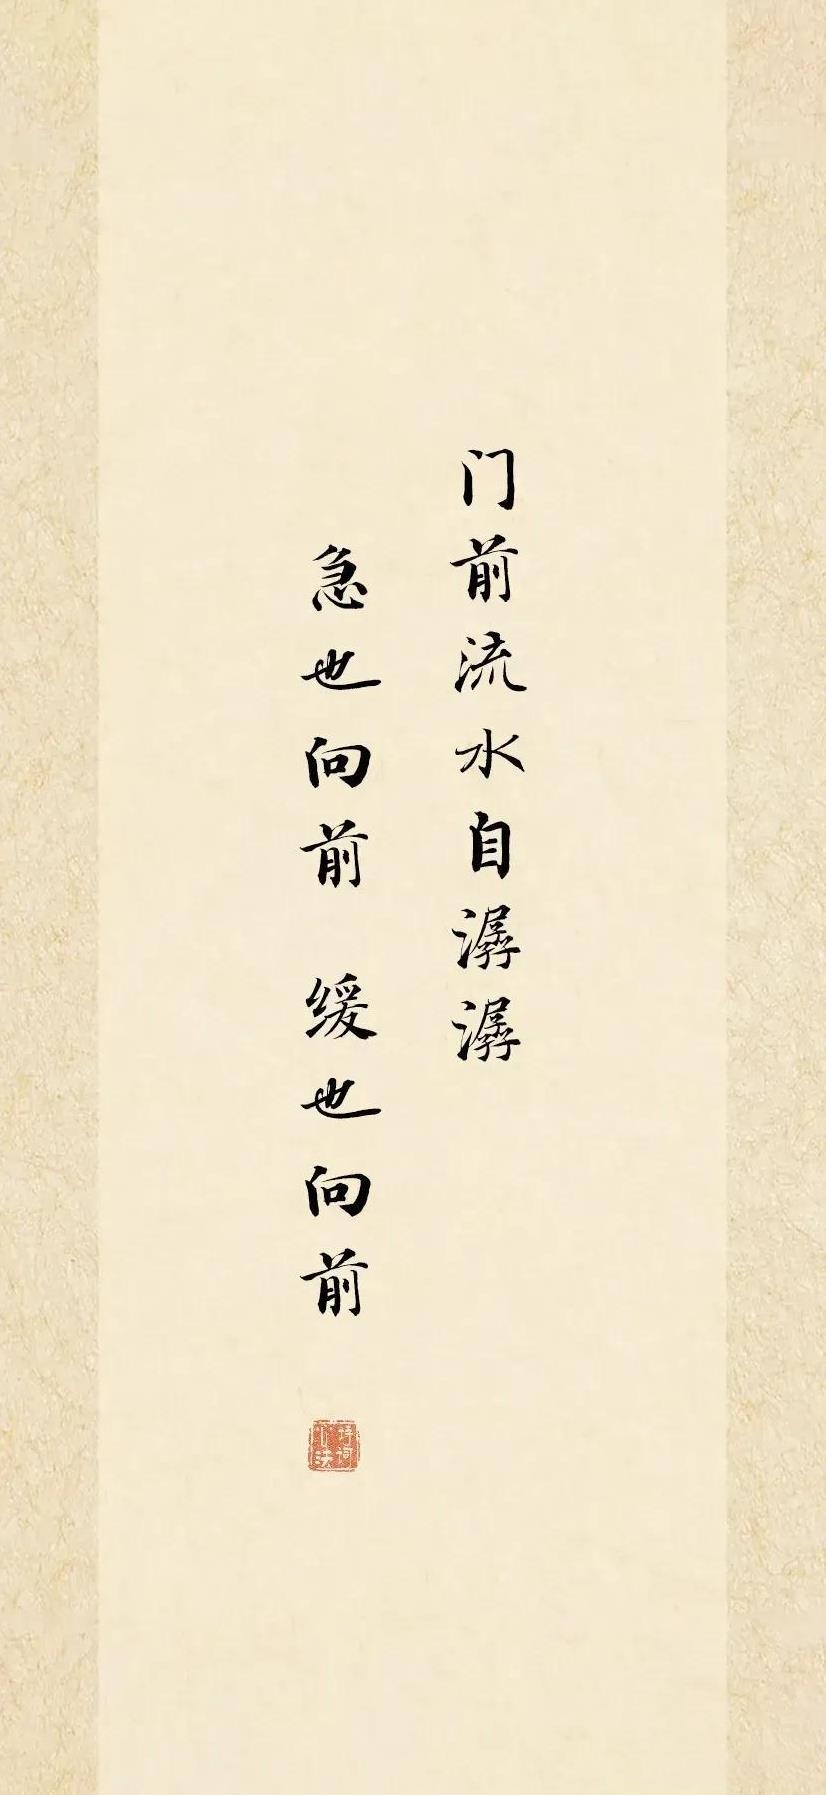 门前流水自潺潺
急也向前 缓也向前
诗词